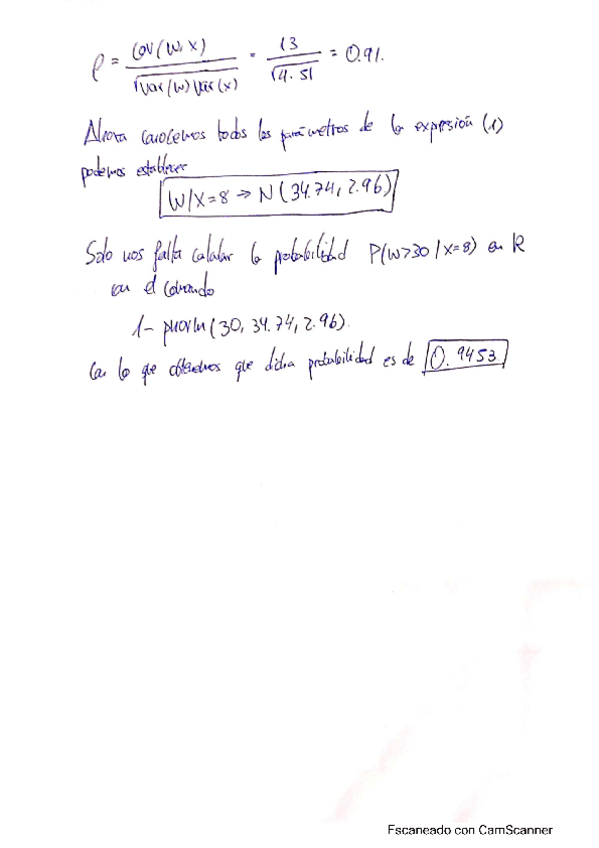 ρ = Cov(W,X) / √Var(W)Var(X) = 13 / √4·51 = 0.91.
Ahora conocemos todos los parámetros de la expresión (1)
podemos establecer
W/X=8 → N(34.74, 2.96)
Solo nos falta calcular la probabilidad P(W>30/X=8) en R
con el comando
1-pnorm(30, 34.74, 2.96).
Con lo que obtenemos que dicha probabilidad es de 0.9453
Escaneado con CamScanner